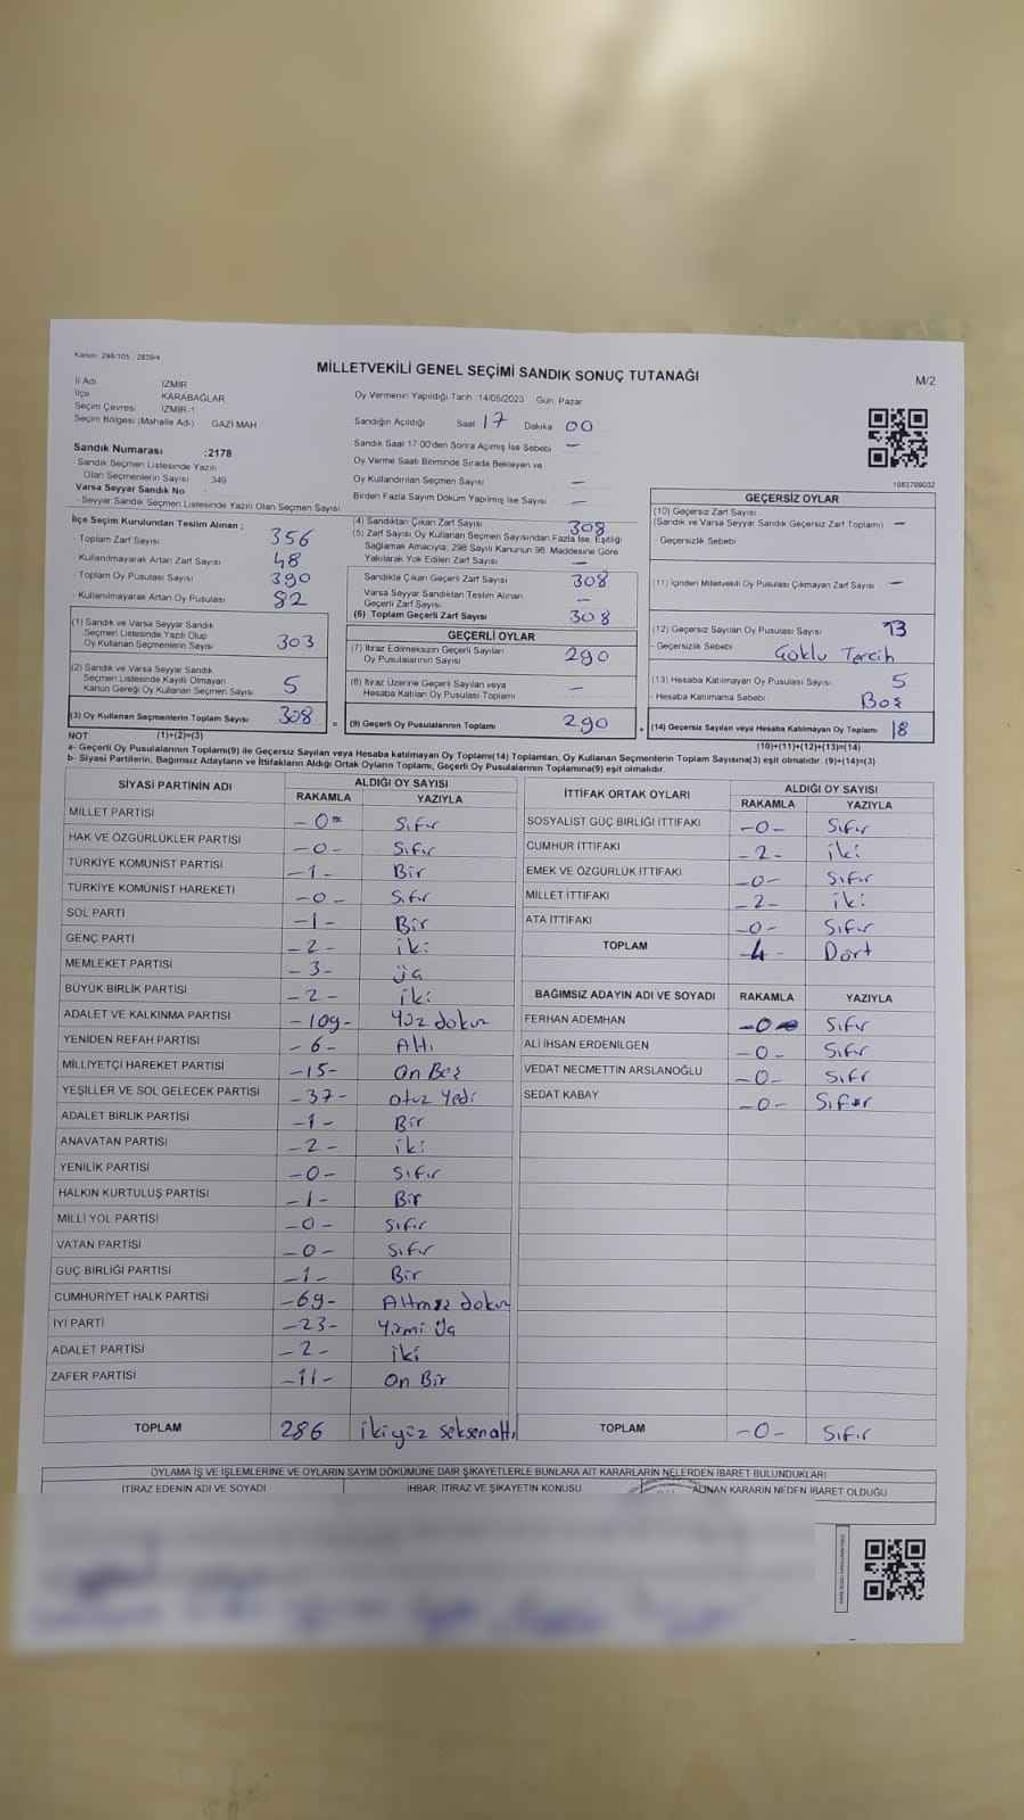 Kanun: 298/105 , 2839/4
MİLLETVEKİLİ GENEL SEÇİMİ SANDIK SONUÇ TUTANAĞI
M/2
İl Adı İZMİR
İlçe KARABAĞLAR
Seçim Çevresi İZMİR-1
Seçim Bölgesi (Mahalle Adı) GAZİ MAH
Sandık Numarası :2178
Sandık Seçmen Listesinde Yazılı
Olan Seçmenlerin Sayısı 349
Varsa Seyyar Sandık No
Seyyar Sandık Seçmen Listesinde Yazılı Olan Seçmen Sayısı
Oy Vermenin Yapıldığı Tarih :14/05/2023 Gün: Pazar
Sandığın Açıldığı Saat 17 Dakika 00
Sandık Saat 17:00'den Sonra Açılmış İse Sebebi —
Oy Verme Saati Bitiminde Sırada Bekleyen ve
Oy Kullandırılan Seçmen Sayısı —
Birden Fazla Sayım Döküm Yapılmış İse Sayısı —
1083709032
İlçe Seçim Kurulundan Teslim Alınan ;
- Toplam Zarf Sayısı 356
- Kullanılmayarak Artan Zarf Sayısı 48
- Toplam Oy Pusulası Sayısı 390
- Kullanılmayarak Artan Oy Pusulası 82
(1) Sandık ve Varsa Seyyar Sandık
Seçmen Listesinde Yazılı Olup
Oy Kullanan Seçmenlerin Sayısı 303
(2) Sandık ve Varsa Seyyar Sandık
Seçmen Listesinde Kayıtlı Olmayan
Kanun Gereği Oy Kullanan Seçmen Sayısı 5
(3) Oy Kullanan Seçmenlerin Toplam Sayısı 308
(4) Sandıktan Çıkan Zarf Sayısı 308
(5) Zarf Sayısı Oy Kullanan Seçmen Sayısından Fazla İse, Eşitliği
Sağlamak Amacıyla, 298 Sayılı Kanunun 98. Maddesine Göre
Yakılarak Yok Edilen Zarf Sayısı —
Sandıkta Çıkan Geçerli Zarf Sayısı 308
Varsa Seyyar Sandıktan Teslim Alınan
Geçerli Zarf Sayısı —
(6) Toplam Geçerli Zarf Sayısı 308
GEÇERLİ OYLAR
(7) İtiraz Edilmeksizin Geçerli Sayılan
Oy Pusulalarının Sayısı 290
(8) İtiraz Üzerine Geçerli Sayılan veya
Hesaba Katılan Oy Pusulası Toplamı —
= (9) Geçerli Oy Pusulalarının Toplamı 290
GEÇERSİZ OYLAR
(10) Geçersiz Zarf Sayısı
(Sandık ve Varsa Seyyar Sandık Geçersiz Zarf Toplamı) —
- Geçersizlik Sebebi
(11) İçinden Milletvekili Oy Pusulası Çıkmayan Zarf Sayısı —
(12) Geçersiz Sayılan Oy Pusulası Sayısı 13
- Geçersizlik Sebebi Çoklu Tercih
(13) Hesaba Katılmayan Oy Pusulası Sayısı 5
- Hesaba Katılmama Sebebi Boş
+ (14) Geçersiz Sayılan veya Hesaba Katılmayan Oy Toplamı 18
NOT (1)+(2)=(3)
(10)+(11)+(12)+(13)=(14)
a- Geçerli Oy Pusulalarının Toplamı(9) ile Geçersiz Sayılan veya Hesaba katılmayan Oy Toplamı(14) Toplamları, Oy Kullanan Seçmenlerin Toplam Sayısına(3) eşit olmalıdır. (9)+(14)=(3)
b- Siyasi Partilerin, Bağımsız Adayların ve İttifakların Aldığı Ortak Oyların Toplamı, Geçerli Oy Pusulalarının Toplamına(9) eşit olmalıdır.
SİYASİ PARTİNİN ADI ALDIĞI OY SAYISI
RAKAMLA YAZIYLA
MİLLET PARTİSİ -0- Sıfır
HAK VE ÖZGÜRLÜKLER PARTİSİ -0- Sıfır
TÜRKİYE KOMÜNİST PARTİSİ -1- Bir
TÜRKİYE KOMÜNİST HAREKETİ -0- Sıfır
SOL PARTİ -1- Bir
GENÇ PARTİ -2- iki
MEMLEKET PARTİSİ -3- üç
BÜYÜK BİRLİK PARTİSİ -2- iki
ADALET VE KALKINMA PARTİSİ -109- Yüz dokuz
YENİDEN REFAH PARTİSİ -6- Altı
MİLLİYETÇİ HAREKET PARTİSİ -15- On Beş
YEŞİLLER VE SOL GELECEK PARTİSİ -37- otuz Yedi
ADALET BİRLİK PARTİSİ -1- Bir
ANAVATAN PARTİSİ -2- iki
YENİLİK PARTİSİ -0- Sıfır
HALKIN KURTULUŞ PARTİSİ -1- Bir
MİLLİ YOL PARTİSİ -0- Sıfır
VATAN PARTİSİ -0- Sıfır
GÜÇ BİRLİĞİ PARTİSİ -1- Bir
CUMHURİYET HALK PARTİSİ -69- Altmış dokuz
İYİ PARTİ -23- Yirmi Üç
ADALET PARTİSİ -2- iki
ZAFER PARTİSİ -11- On Bir
TOPLAM 286 ikiyüz seksenaltı
İTTİFAK ORTAK OYLARI ALDIĞI OY SAYISI
RAKAMLA YAZIYLA
SOSYALİST GÜÇ BİRLİĞİ İTTİFAKI -0- Sıfır
CUMHUR İTTİFAKI -2- iki
EMEK VE ÖZGÜRLÜK İTTİFAKI -0- Sıfır
MİLLET İTTİFAKI -2- iki
ATA İTTİFAKI -0- Sıfır
TOPLAM -4- Dört
BAĞIMSIZ ADAYIN ADI VE SOYADI RAKAMLA YAZIYLA
FERHAN ADEMHAN -0- Sıfır
ALİ İHSAN ERDENİLGEN -0- Sıfır
VEDAT NECMETTİN ARSLANOĞLU -0- Sıfır
SEDAT KABAY -0- Sıfır
TOPLAM -0- Sıfır
OYLAMA İŞ VE İŞLEMLERİNE VE OYLARIN SAYIM DÖKÜMÜNE DAİR ŞİKAYETLERLE BUNLARA AİT KARARLARIN NELERDEN İBARET BULUNDUKLARI
İTİRAZ EDENİN ADI VE SOYADI İHBAR, İTİRAZ VE ŞİKAYETİN KONUSU ALINAN KARARIN NEDEN İBARET OLDUĞU